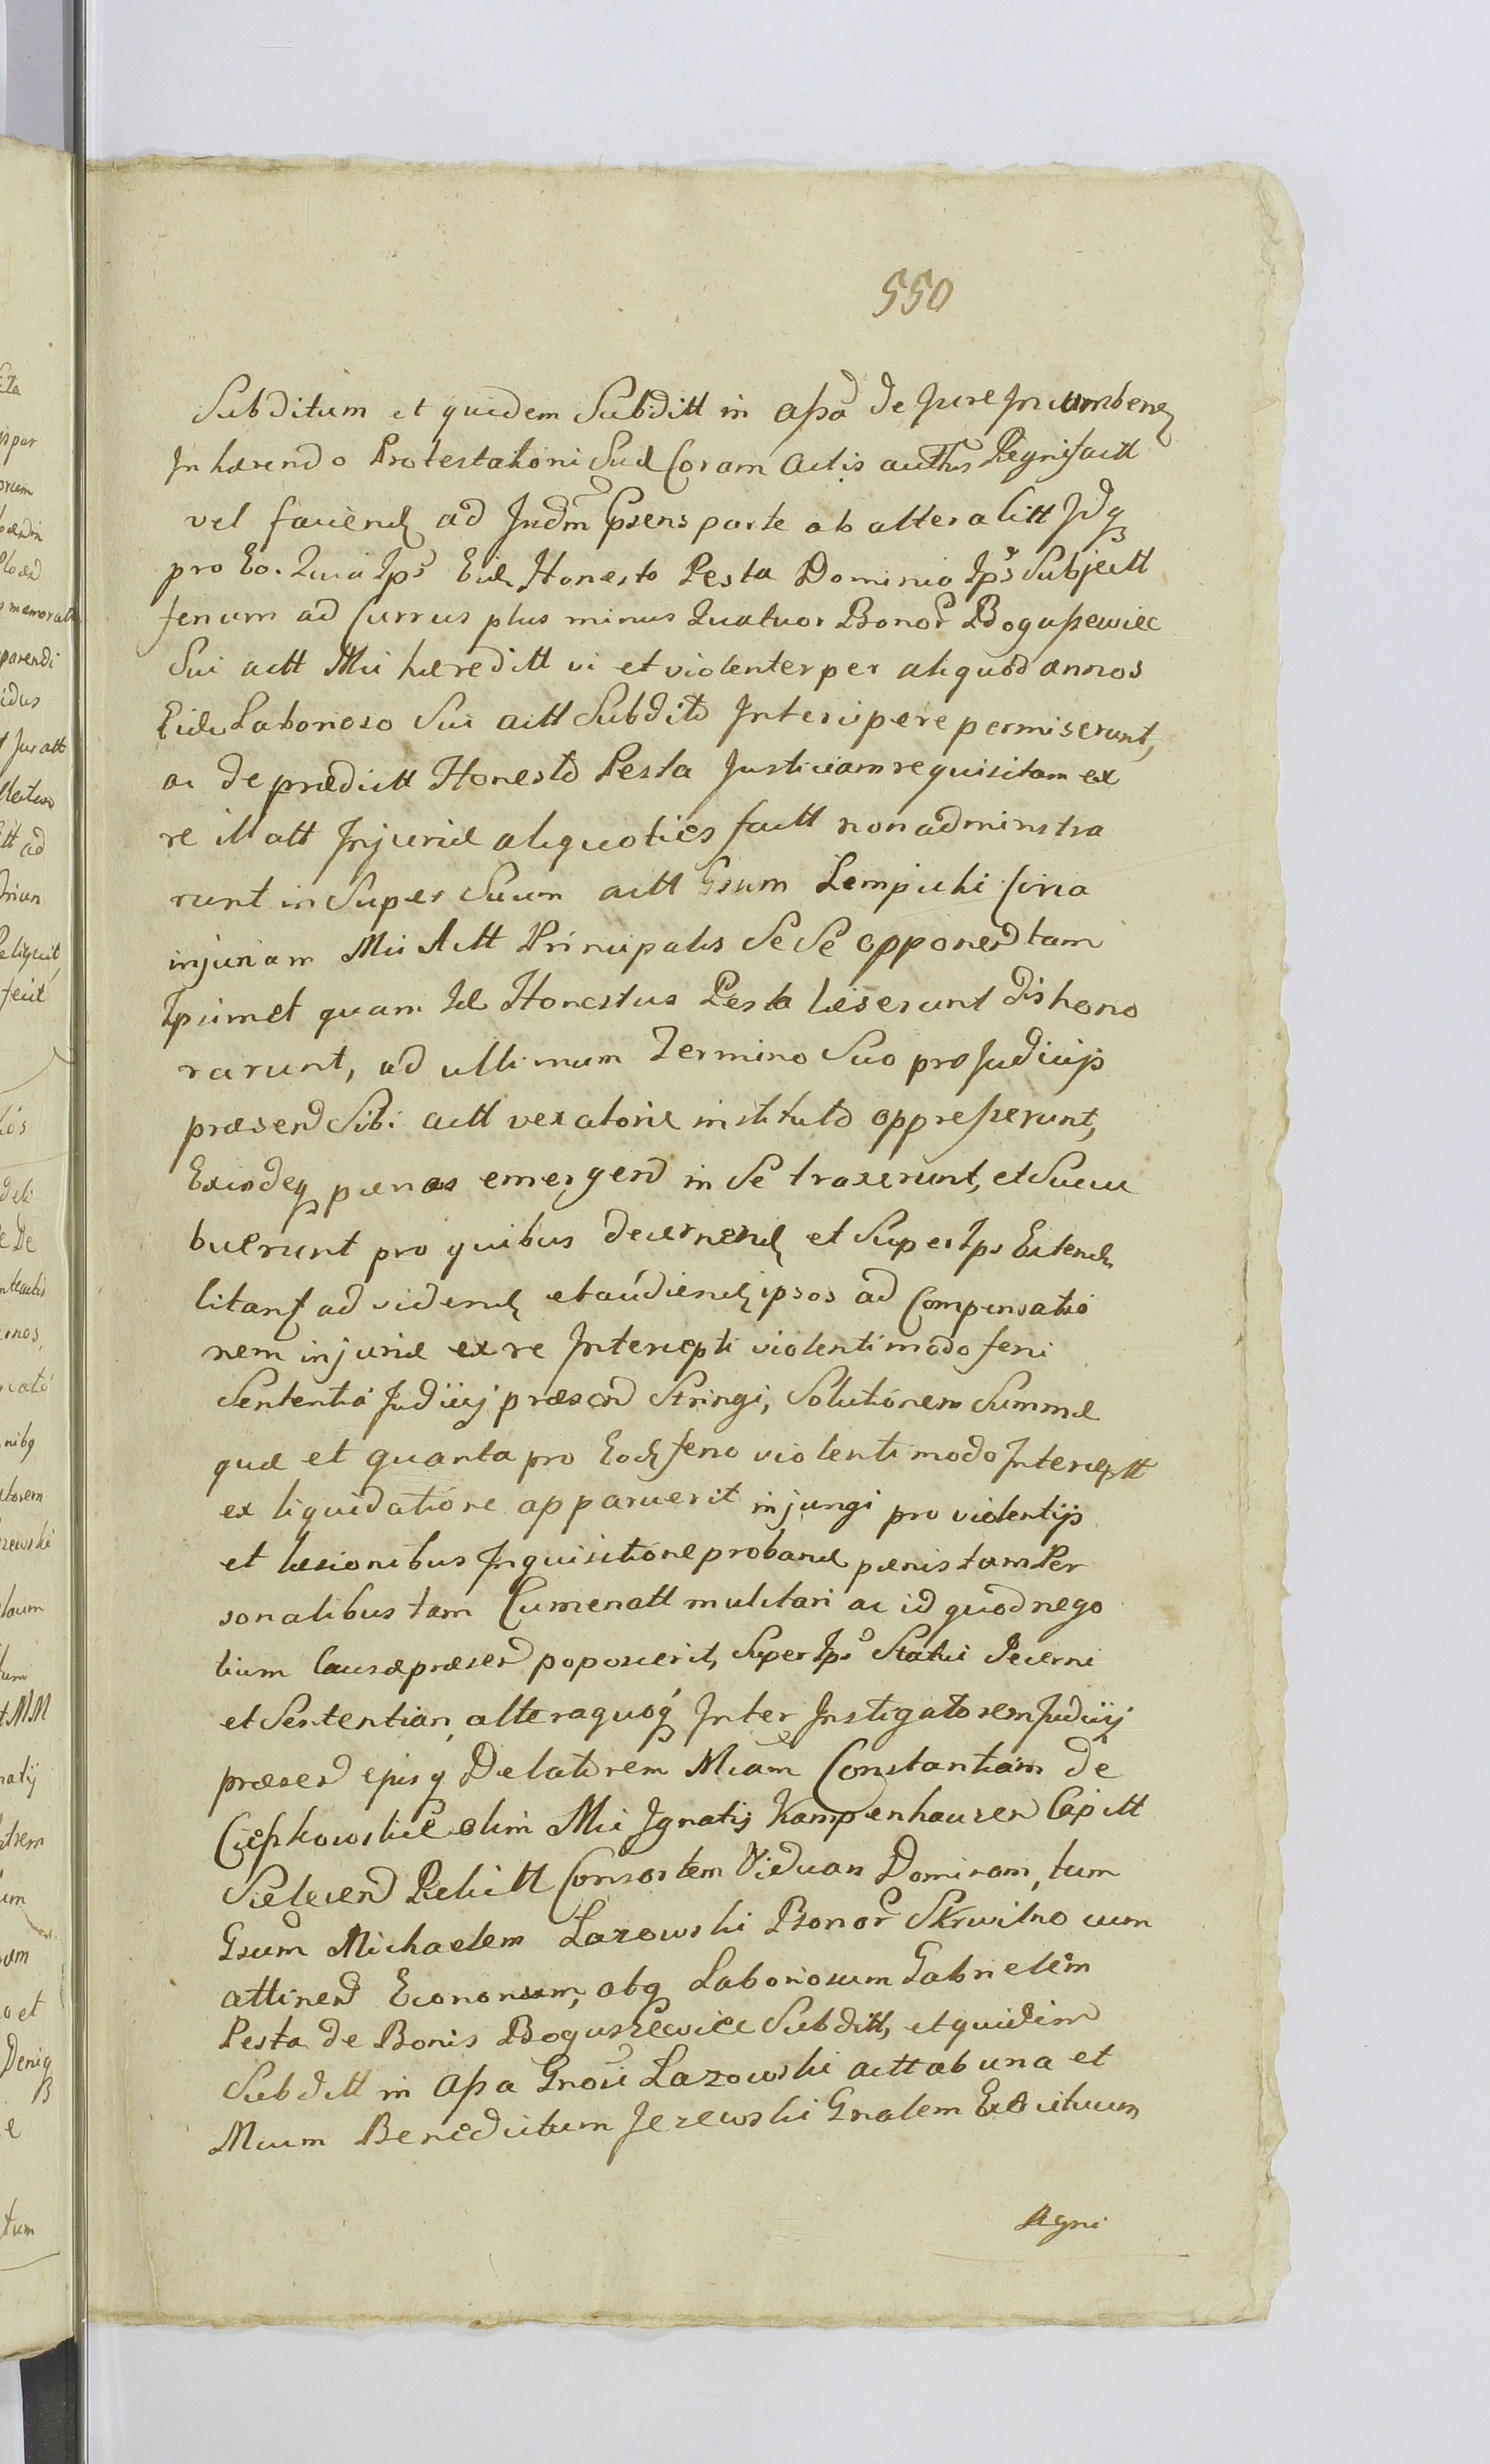 550
Subditum et quidem Subditt in aßã de Jure Incumbenꝫ
Inhærendo Protestationi Suæ Coram Actis auths Regni factt
vel faciend ad Judm Pꝫens parte ab altera litt Idq
pro Eo. Quia Ips Eid Honesto Pesta Dominio Ips Subjectt
fenum ad Currus plus minus Quatuor Bonor Bogußewiec
Sui actt Mii hæreditt vi et violenter per aliquod annos
Eid Laborioso Sui actt Subdito Intercipere permiserunt,
ac de prædictt Honesto Pesta Justiciam requisitam ex
re illatt Injuriæ aliquoties factt non adminstra
runt in Super Suum actt Gsum Lempicki Circa
injuriam Mii Actt Principalis Se Se opponend tam
Ipsimet quam Id Honestus Pesta læserunt dishono
rarunt, ad ultimum Termino Suo pro Judicijs
præsend Sibi actt vexatoriæ instituto oppreßerunt,
Exindeq pænas emergend in Se traxerunt, et Succu
buerunt pro quibus decernend et Super Ips Extend
litant ad vidend et audiend ipsos ad Compensatio
nem injuriæ ex re Intercepti violenti modo feni
Sententia Judicij præsend Stringi, Solutionem Summæ
quæ et quanta pro Eod feno violenti modo Interceptt
ex liquidatione apparuerit injungi pro violentijs
et læsionibus Inquisitione proband pænis tam Per
sonalibus tam Cumenatt mulctari ac id quod nego
tium Causæ præsend poposcerit, Super Ips Statui decerni
et Sententian, altera quoq Inter Instigatorem Judicij
præsend ejusq Delatorem Mcam Constantiam de
Cießkowskie olim Mii Ignatij Kampenhausen Capitt
Sielecend Relictt Consortem Viduam Dominam, tum
Gsum Michaelem Lazowski Bonor Skrwilno cum
attinend Economum, atq Laboriosum Gabrielem
Pesta de Bonis Boguszewiec Subditt, et quidem
Subditt in Aßa Gnosi Lazowski actt ab una et
Mcum Benedictum Jezewski Gnalem Exercituum
Regni